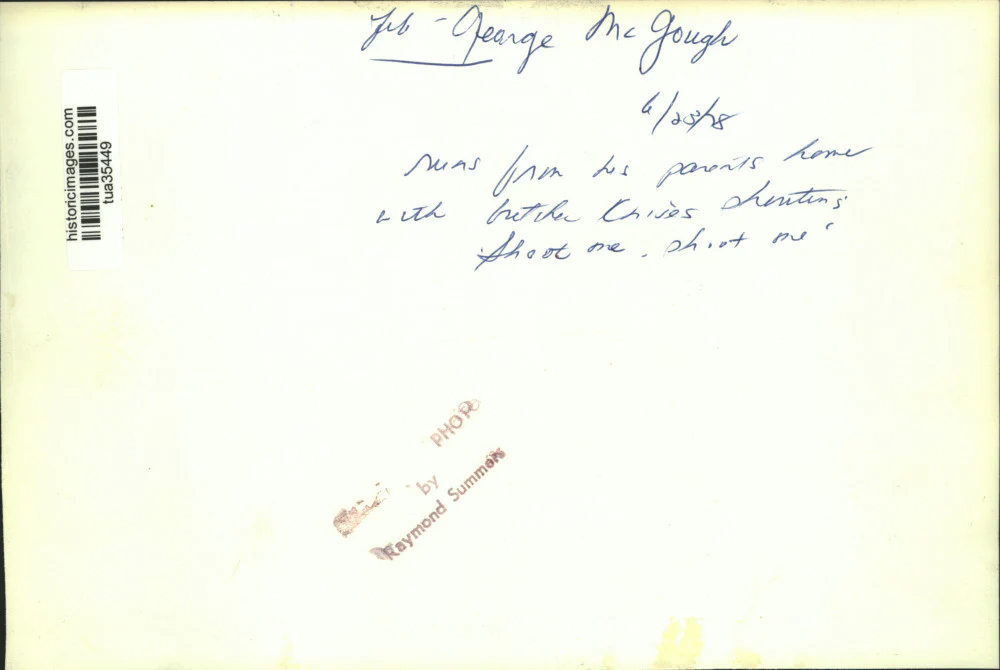 George McGough
6/28/78
runs from his parents home
with butcher knives shouting
"shoot me, shoot me"
historicimages.com
tua35449
PHOTO
by
Raymond Summers